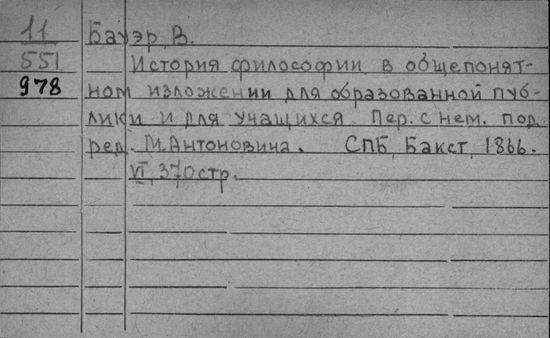 11 Бауэр, В.
551 История философии в общепонят-
978 ном изложении для образованной пуб-
лики и для учащихся. Пер. с нем. под
ред. М. Антоновича. СПБ, Бакст, 1866.
VI, 370 стр.